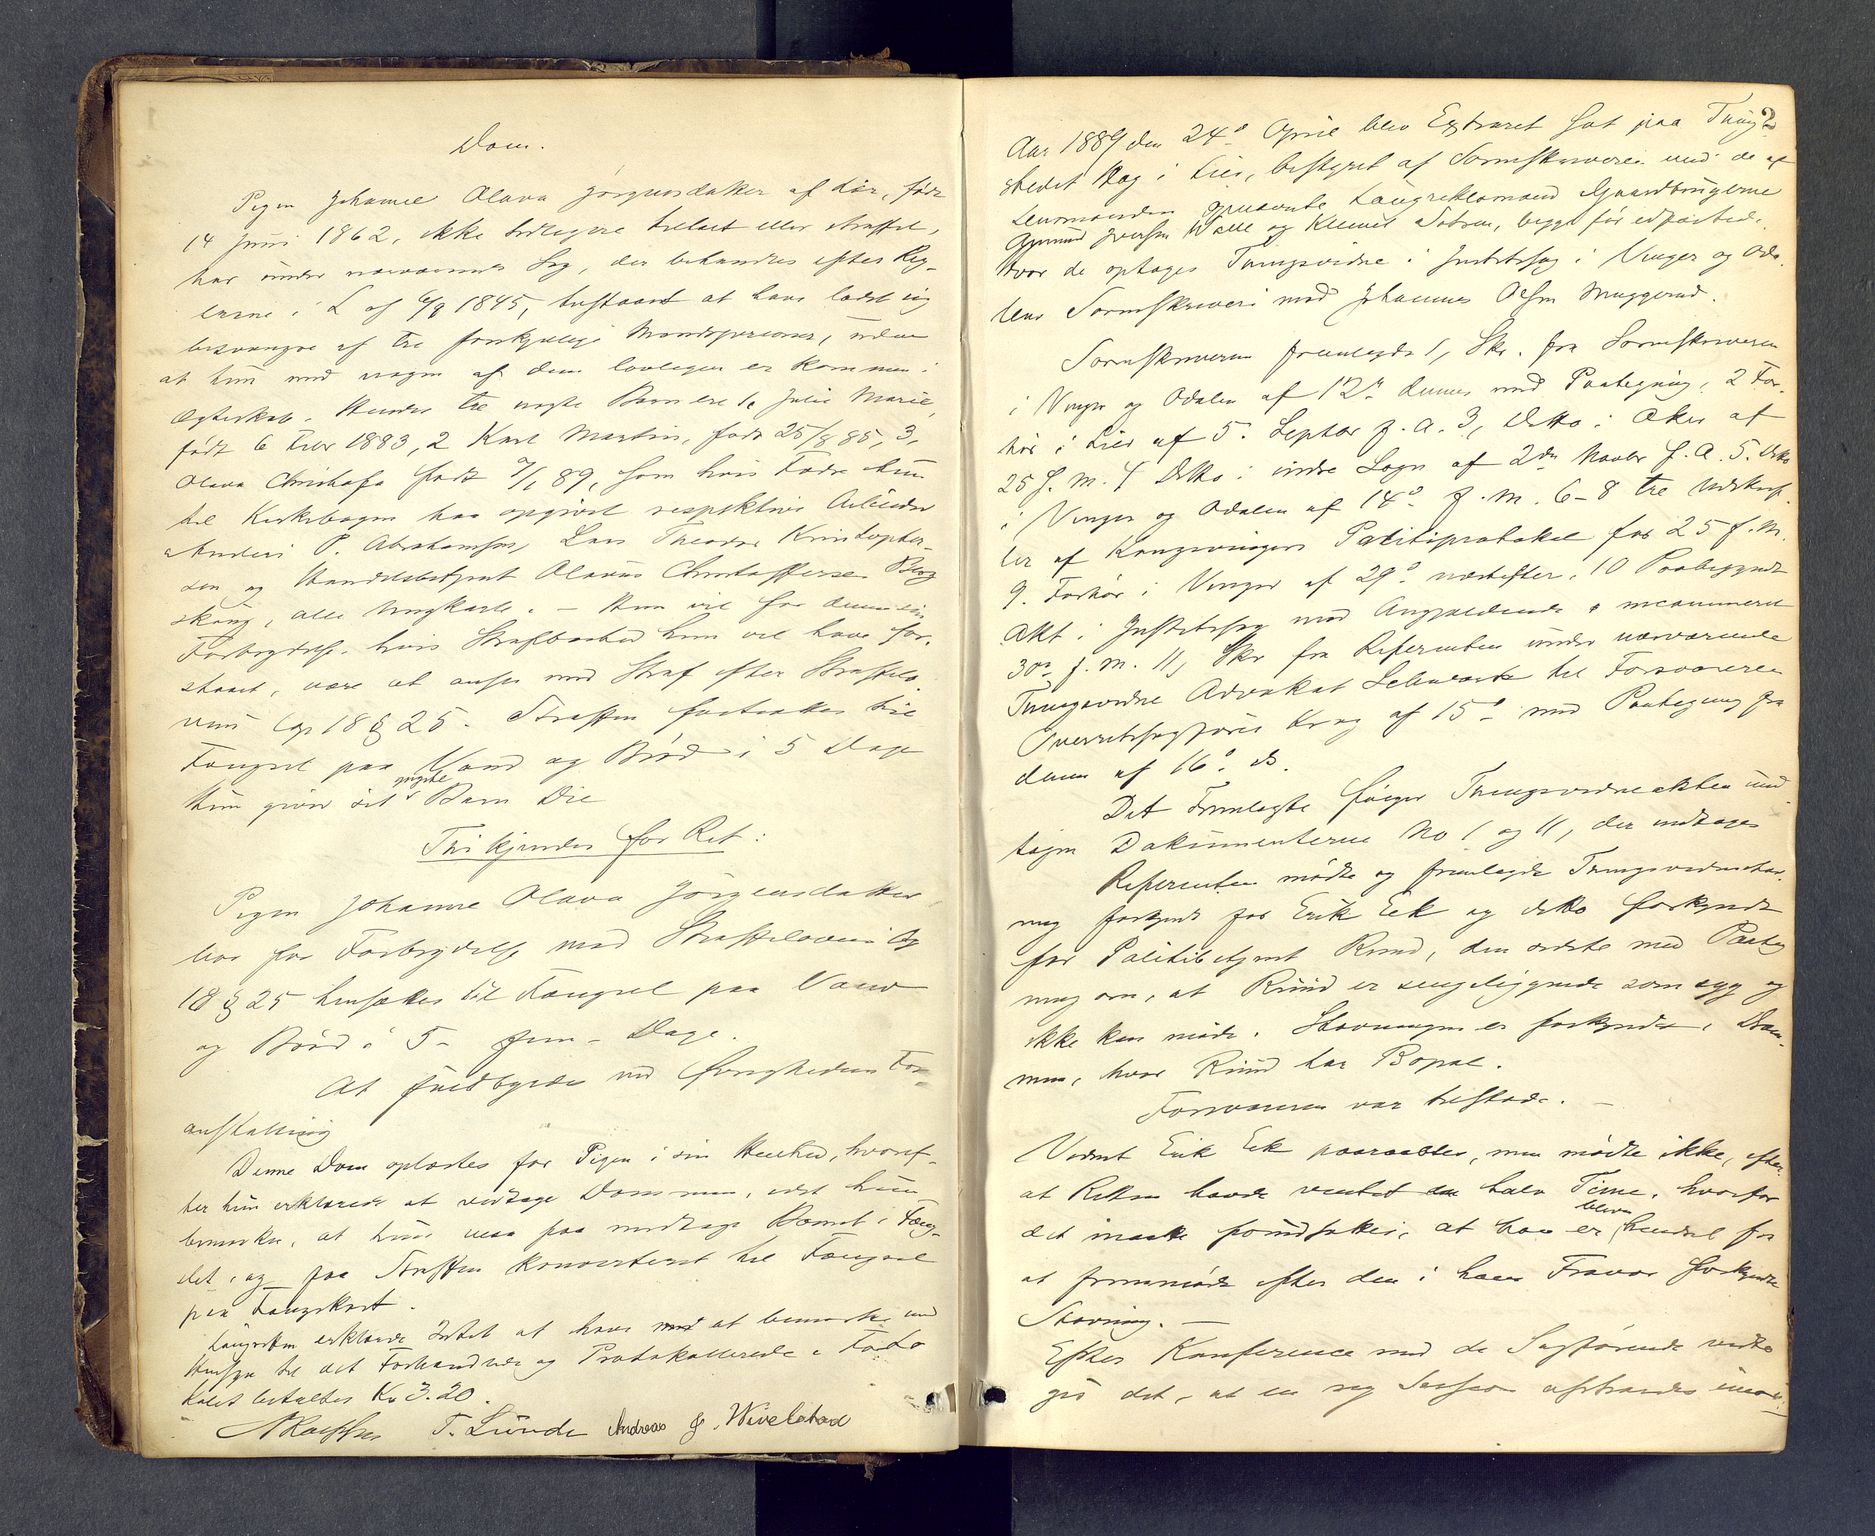 Dom.
Pigen Johanne Olava Jørgensdatter af Lier, født
14 Juni 1862, ikke tidligere tiltalt eller straffet,
har under nærværende Sag, der behandles efter Reg-
lerne i L af 6/9 1845, tilstaaet at have ladet sig
besvangre af tre forskjellige Mandspersoner, uden
at hun med nogen af dem lovligen er kommen i
Ægteskab. Hendes tre uægte Børn ere 1, Julie Marie,
født 6 Febr 1883, 2 Karl Martin, født 25/8 85, 3,
Olava Christofa født 7/1 89, som hvis Fædre hun
til Kirkebogen har opgivet respektive Arbeider
Anders P. Abrahamsen, Lars Theodor Kristopher-
sen og Handelsbetjent Olavus Christoffersen
alle Ungkarle. – Hun vil for denne sin
Forbrydelse, hvis Strafbarhed hun vil have for-
staaet, være at anse med Straf efter Straffelo-
vens Cap 18 § 25. Straffen fastsættes til
Fængsel paa Vand og Brød i 5 Dage
Hun giver sit yngste Barn Die
Thi kjendes for Ret:
Pigen Johanne Olava Jørgensdatter
bør for Forbrydelse mod Straffelovens Cap
18 § 25 hensættes til Fængsel paa Vand
og Brød i 5 – fem – Dage.
At fuldbyrdes ved Øvrighedens For-
anstaltning
Denne Dom oplæstes for Pigen i sin Helhed, hvoref-
ter hun erklærede at vedtage Dommen, idet hun
bemærker, at hun maa paa medtage Barnet i Fæng-
slet, og faa Straffen konverteret til Fængsel
paa Fangekost.
Lagretten erklærede Intet at have at bemærke med
Hensyn til det Forhandlede og Protokollerede.
kolet betaltes Kr 3.20.
T. Lunde Andreas J. Wivelstad
2
Aar 1889 den 24de April blev Extraret sat paa Thing-
stedet Hag i Lier, bestyret af Sorenskriveren med de af
Lensmanden opnævnte Laugrettesmænd Gaardbrugerne
Gjermund Iversen og Klemet begge før edfæstede.
Hvor da optages Thingsvidne i Justitssag i Vinger og Oda-
lens Sorenskriveri mod Johannes Olsen Muggerud.
Sorenskriveren fremlagde 1, Skr. fra Sorenskriveren
i Vinger og Odalen af 12te dennes med Paategning, 2 For-
hør i Lier af 5. Septbr f. A. 3, Ditto i Aker af
25 f. M. 4 Ditto i indre Sogn af 2den Novbr f. A. 5. Ditto
i Vinger og Odalen af 14de f. M. 6–8 tre Udskrif-
ter af Kongsvingers Politiprotokol for 25 f. M.
9. Forhør i Vinger af 29de næstefter, 10 Paabegyndt
Akt i Justitssag mod Angjældende incamineret
30te f. M. 11, Skr fra Referenten under nærværende
Thingsvidne Advokat til Forsvareren
Overretssagfører Krag af 15de med Paategning fra
denne af 16de ds.
Det Fremlagte følger Thingsvidneakten und-
tagen Dokumenterne No 1 og 11, der medtages
Referenten mødte og fremlagde Thingsvidnestæv-
ning forkyndt for Erik Eek og ditto forkyndt
for Politibetjent Ruud, den sidste med Paateg
ning om, at Ruud er sengeliggende som syg og
ikke kan møde. Stævningen er forkyndt i Dram-
men, hvor Ruud har Bopæl.
Forsvareren var tilstede. –
Vidnet Erik Eek paaraabtes, men mødte ikke, efter
at Retten havde ventet en halv Time, hvorfor
det maatte forudsættes, at han er bleven hindret fra
at fremmøde efter den i hans Fravær forkyndte
Stævning. –
Efter Konference med de Sagførende vedto
ges det, at en ny Session afholdes